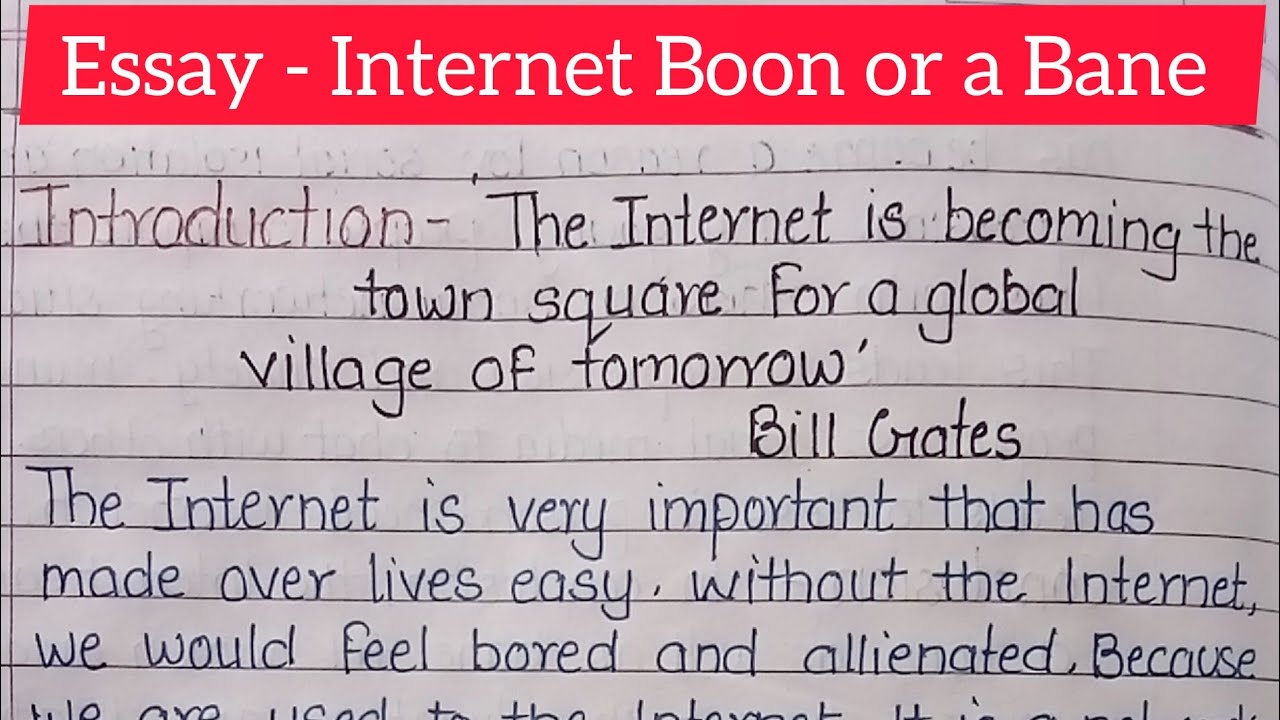 Essay - Internet Boon or a Bane
Introduction - The Internet is becoming the
town square for a global
village of tomorrow'
Bill Gates
The Internet is very important that has
made over lives easy. without the Internet,
we would feel bored and allienated. Because
we are used to the Internet. It is a